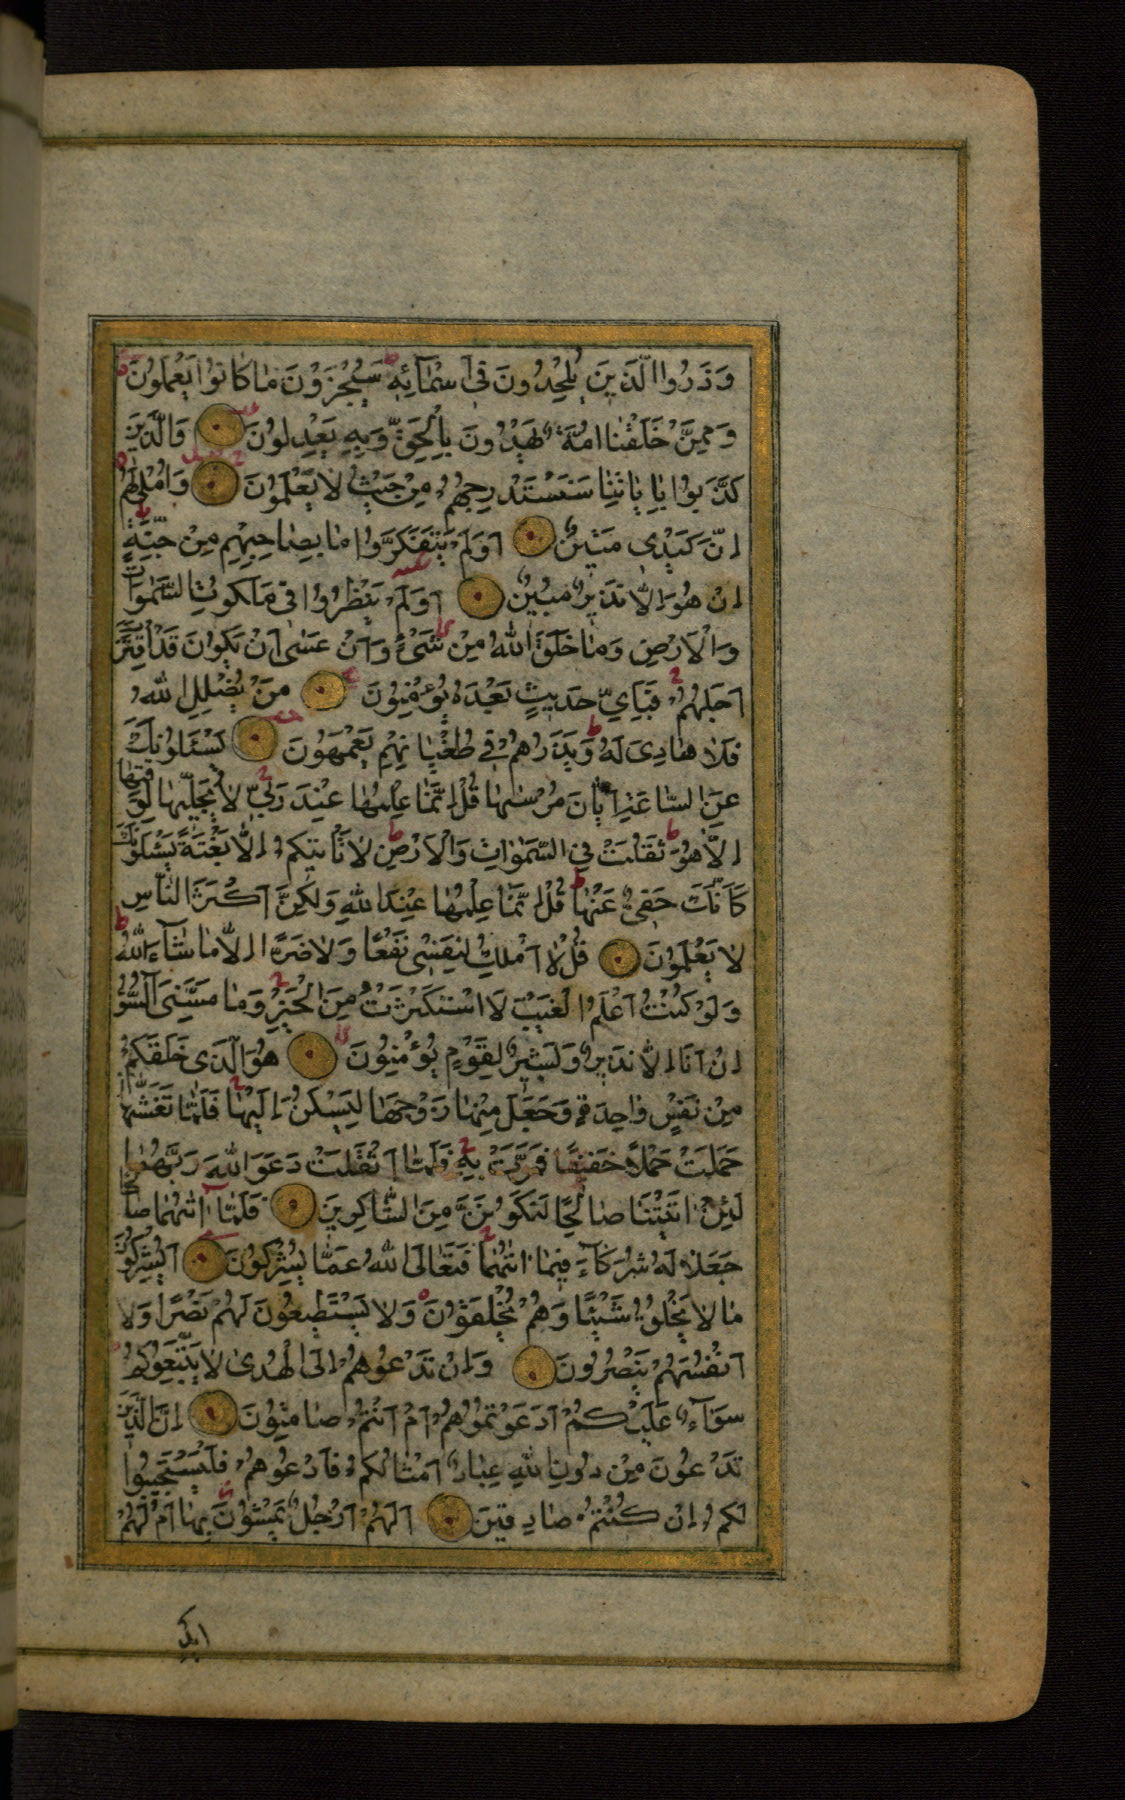 وَذَرُوا الَّذِينَ يُلْحِدُونَ فِي أَسْمَائِهِ سَيُجْزَوْنَ مَا كَانُوا يَعْمَلُونَ
وَمِمَّنْ خَلَقْنَا أُمَّةٌ يَهْدُونَ بِالْحَقِّ وَبِهِ يَعْدِلُونَ وَالَّذِينَ
كَذَّبُوا بِآيَاتِنَا سَنَسْتَدْرِجُهُمْ مِنْ حَيْثُ لَا يَعْلَمُونَ وَأُمْلِي لَهُمْ
إِنَّ كَيْدِي مَتِينٌ أَوَلَمْ يَتَفَكَّرُوا مَا بِصَاحِبِهِمْ مِنْ جِنَّةٍ
إِنْ هُوَ إِلَّا نَذِيرٌ مُبِينٌ أَوَلَمْ يَنْظُرُوا فِي مَلَكُوتِ السَّمٰوَاتِ
وَالْأَرْضِ وَمَا خَلَقَ اللّٰهُ مِنْ شَيْءٍ وَأَنْ عَسَىٰ أَنْ يَكُونَ قَدِ اقْتَرَبَ
أَجَلُهُمْ فَبِأَيِّ حَدِيثٍ بَعْدَهُ يُؤْمِنُونَ مَنْ يُضْلِلِ اللّٰهُ
فَلَا هَادِيَ لَهُ وَيَذَرُهُمْ فِي طُغْيَانِهِمْ يَعْمَهُونَ يَسْئَلُونَكَ
عَنِ السَّاعَةِ أَيَّانَ مُرْسٰيهَا قُلْ إِنَّمَا عِلْمُهَا عِنْدَ رَبِّي لَا يُجَلِّيهَا لِوَقْتِهَا
إِلَّا هُوَ ثَقُلَتْ فِي السَّمٰوَاتِ وَالْأَرْضِ لَا تَأْتِيكُمْ إِلَّا بَغْتَةً يَسْئَلُونَكَ
كَأَنَّكَ حَفِيٌّ عَنْهَا قُلْ إِنَّمَا عِلْمُهَا عِنْدَ اللّٰهِ وَلٰكِنَّ أَكْثَرَ النَّاسِ
لَا يَعْلَمُونَ قُلْ لَا أَمْلِكُ لِنَفْسِي نَفْعًا وَلَا ضَرًّا إِلَّا مَا شَاءَ اللّٰهُ
وَلَوْ كُنْتُ أَعْلَمُ الْغَيْبَ لَاسْتَكْثَرْتُ مِنَ الْخَيْرِ وَمَا مَسَّنِيَ السُّوءُ
إِنْ أَنَا إِلَّا نَذِيرٌ وَبَشِيرٌ لِقَوْمٍ يُؤْمِنُونَ هُوَ الَّذِي خَلَقَكُمْ
مِنْ نَفْسٍ وَاحِدَةٍ وَجَعَلَ مِنْهَا زَوْجَهَا لِيَسْكُنَ إِلَيْهَا فَلَمَّا تَغَشّٰيهَا
حَمَلَتْ حَمْلًا خَفِيفًا فَمَرَّتْ بِهِ فَلَمَّا أَثْقَلَتْ دَعَوَا اللّٰهَ رَبَّهُمَا
لَئِنْ آتَيْتَنَا صَالِحًا لَنَكُونَنَّ مِنَ الشَّاكِرِينَ فَلَمَّا آتٰيهُمَا صَالِحًا
جَعَلَا لَهُ شُرَكَاءَ فِيمَا آتٰيهُمَا فَتَعَالَى اللّٰهُ عَمَّا يُشْرِكُونَ أَيُشْرِكُونَ
مَا لَا يَخْلُقُ شَيْئًا وَهُمْ يُخْلَقُونَ وَلَا يَسْتَطِيعُونَ لَهُمْ نَصْرًا وَلَا
أَنْفُسَهُمْ يَنْصُرُونَ وَإِنْ تَدْعُوهُمْ إِلَى الْهُدَىٰ لَا يَتَّبِعُوكُمْ
سَوَاءٌ عَلَيْكُمْ أَدَعَوْتُمُوهُمْ أَمْ أَنْتُمْ صَامِتُونَ إِنَّ الَّذِينَ
تَدْعُونَ مِنْ دُونِ اللّٰهِ عِبَادٌ أَمْثَالُكُمْ فَادْعُوهُمْ فَلْيَسْتَجِيبُوا
لَكُمْ إِنْ كُنْتُمْ صَادِقِينَ أَلَهُمْ أَرْجُلٌ يَمْشُونَ بِهَا أَمْ لَهُمْ